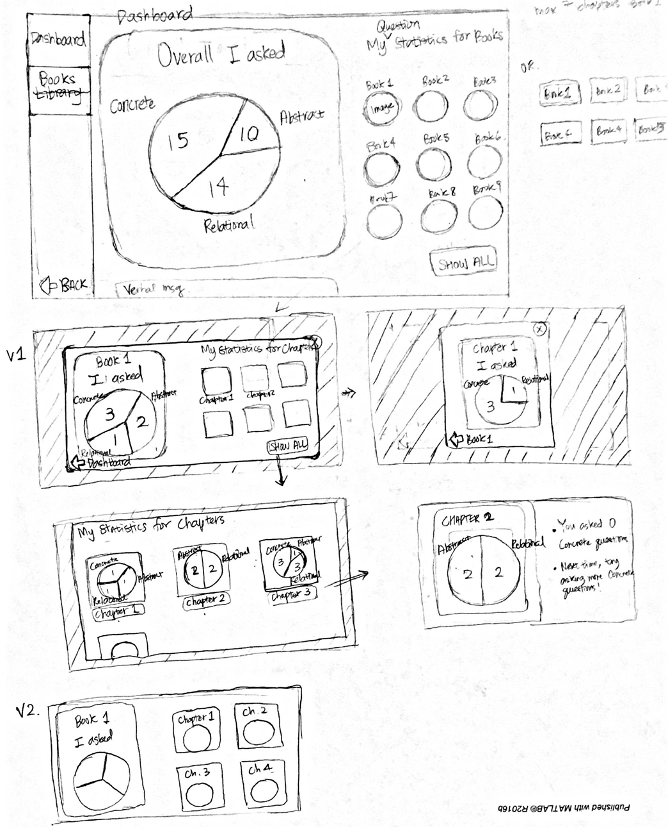 Dashboard
Dashboard
Books
Library
BACK
Overall I asked
Concrete
Abstract
15
10
14
Relational
Verbal msg
Question
My Statistics for Books
Book 1
Book 2
Book 3
Image
Book 4
Book 5
Book 6
Book 7
Book 8
Book 9
SHOW ALL
OR
Book 1
Book 2
Book
V1
Book 1
I asked
Concrete
Abstract
3
2
1
Relational
Dashboard
My Statistics for Chapters
Chapter 1
Chapter 2
SHOW ALL
X
Chapter 1
I asked
Concrete
Relational
1
3
Book 1
My Statistics for Chapters
Concrete
Abstract
Relational
Chapter 1
Abstract
Relational
2
2
Chapter 2
Concrete
Abstract
3
3
Relational
Chapter 3
CHAPTER 2
Abstract
Relational
2
2
• You asked 0
Concrete questions
• Next time, try
asking more Concrete
questions!
V2.
Book 1
I asked
Chapter 1
Ch. 2
Ch. 3
Ch 4
Published with MATLAB® R2016b